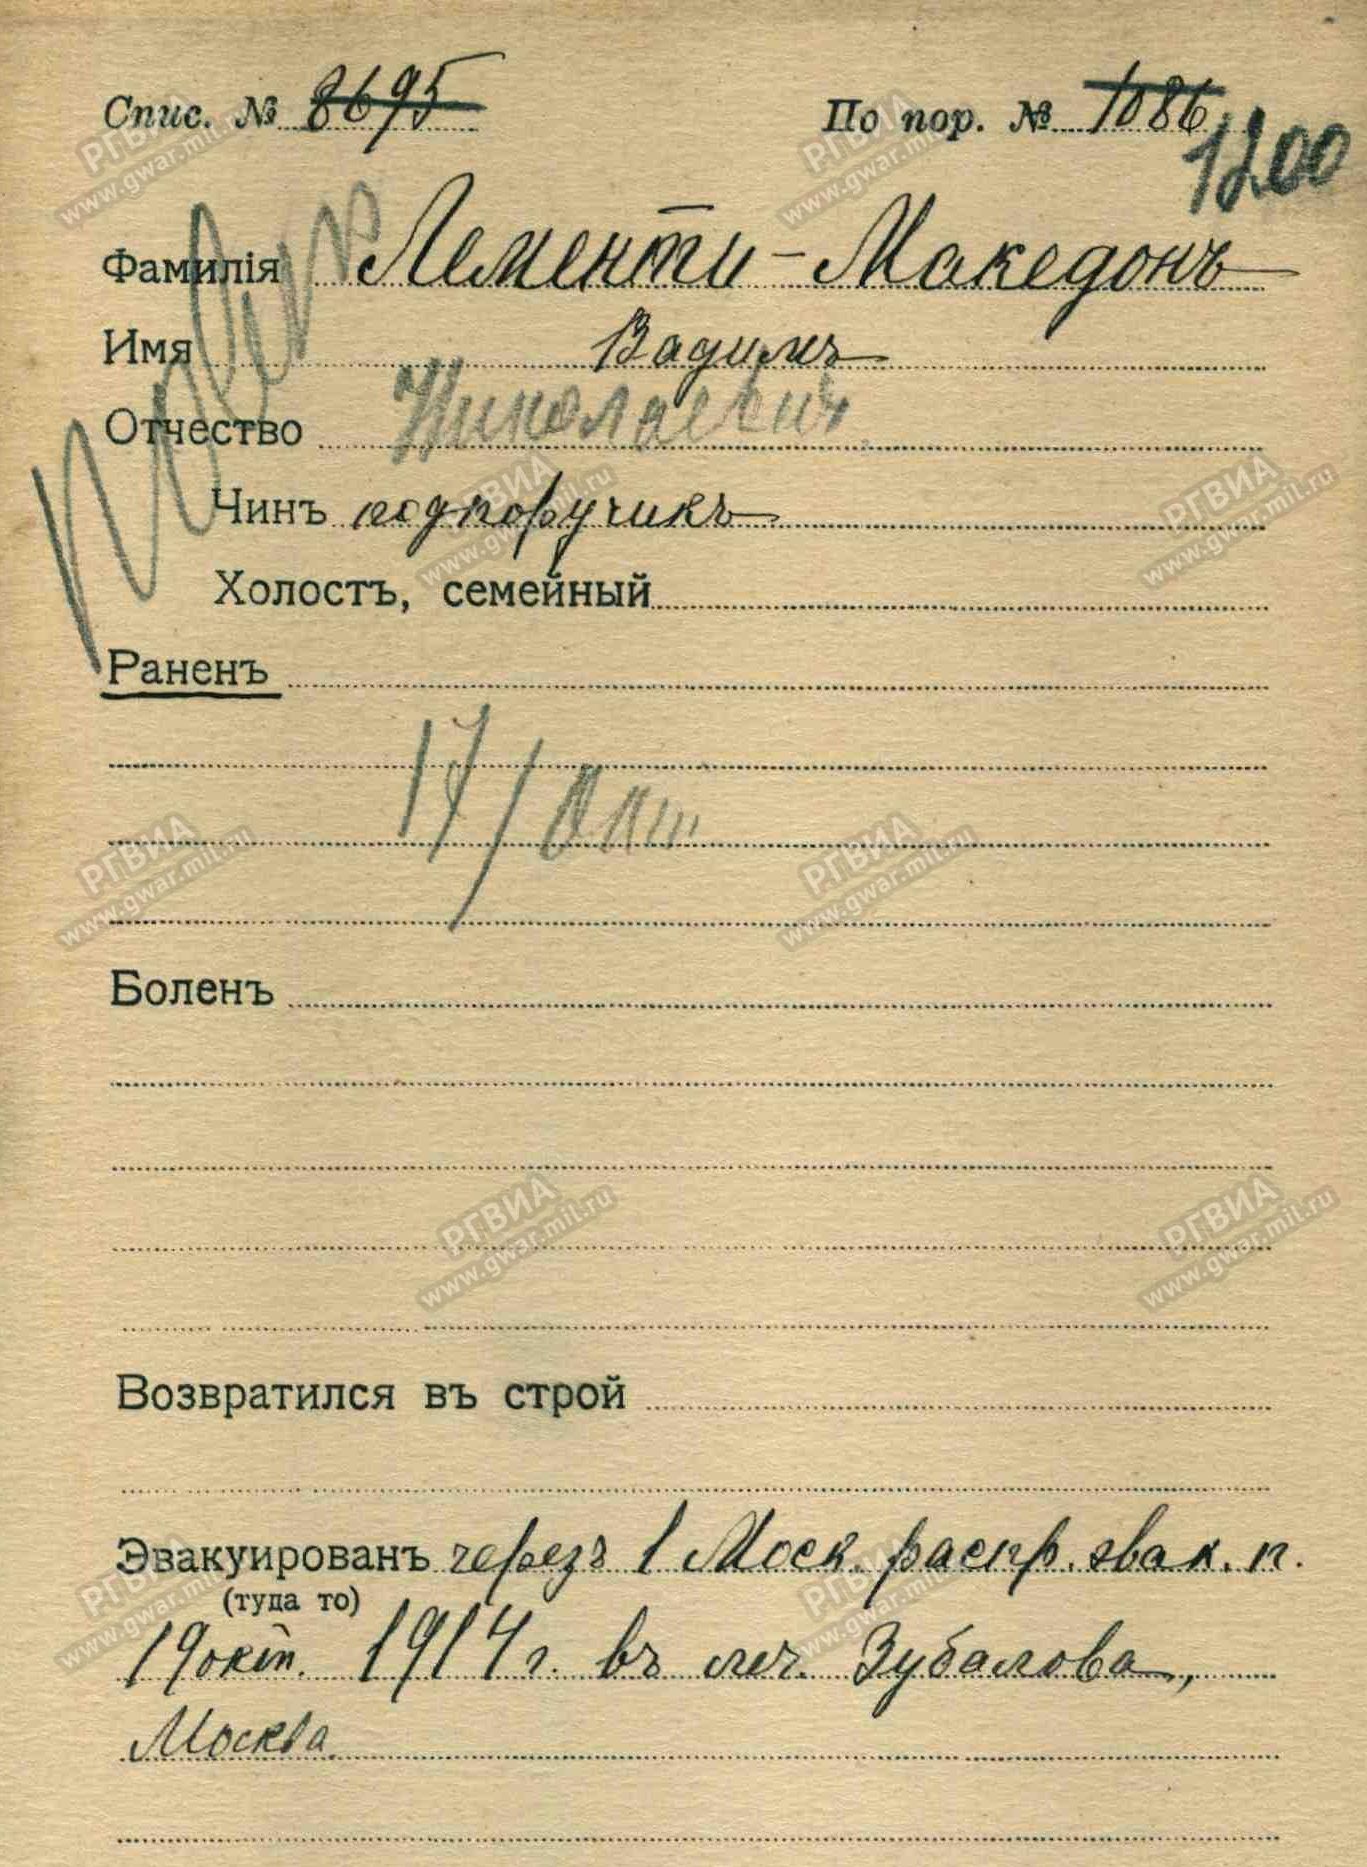 Спис. № 8695 По пор. № 1086
1200
Фамилія Лементи-Македонъ
Имя Вадимъ
Отчество Николаевич
Чинъ подпоручикъ
Холостъ, семейный
Раненъ
17/Окт
Боленъ
Возвратился въ строй
Эвакуированъ через 1 Моск. распр. эвак. п.
(туда то)
19 окт. 1914 г. въ леч. Зубалова,
Москва
РГВИА
www.gwar.mil.ru